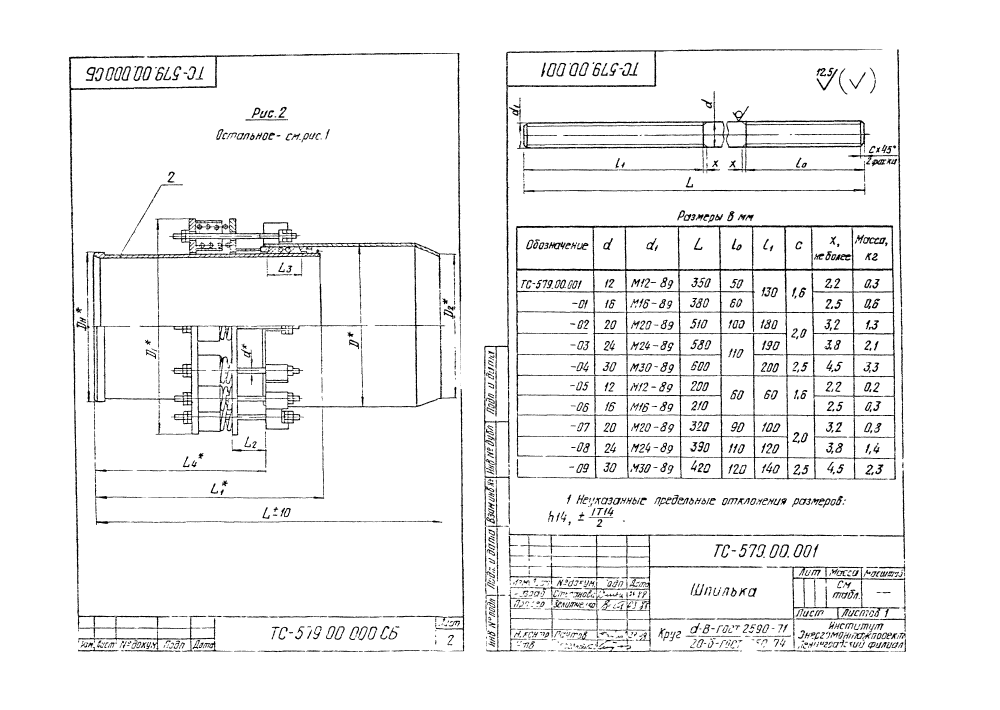 ТС-579.00.000 СБ
Рис.2
Остальное - см.рис.1
2
L3
Dн*
D1*
d*
D*
D2*
L2
L4*
L1*
L±10
ТС-579.00.000 СБ
Лист
2
Изм. Лист № докум. Подп Дата
ТС-579.00.001
12,5 (√)
d1
d
l1
x
x
l0
L
c×45°
2 фаски
Размеры в мм
Обозначение d d1 L l0 l1 c x, не более Масса, кг
ТС-579.00.001 12 М12-8g 350 50 130 1,6 2,2 0,3
-01 16 М16-8g 380 60 2,5 0,6
-02 20 М20-8g 510 100 180 2,0 3,2 1,3
-03 24 М24-8g 580 110 190 3,8 2,1
-04 30 М30-8g 600 200 2,5 4,5 3,3
-05 12 М12-8g 200 60 60 1,6 2,2 0,2
-06 16 М16-8g 210 2,5 0,3
-07 20 М20-8g 320 90 100 2,0 3,2 0,8
-08 24 М24-8g 390 110 120 3,8 1,4
-09 30 М30-8g 420 120 140 2,5 4,5 2,3
1 Неуказанные предельные отклонения размеров:
h14, ± IT14/2 .
Инв № подл Подп и дата Взам инв № Инв № дубл Подп. и дата
ТС-579.00.001
Шпилька
Лит Масса Масштаб
См табл. —
Лист Листов 1
№ докум. Подп Дата
Н.контр
Круг d-В-ГОСТ 2590-71
Институт
Энергомонтажпроект
Ленинградский филиал